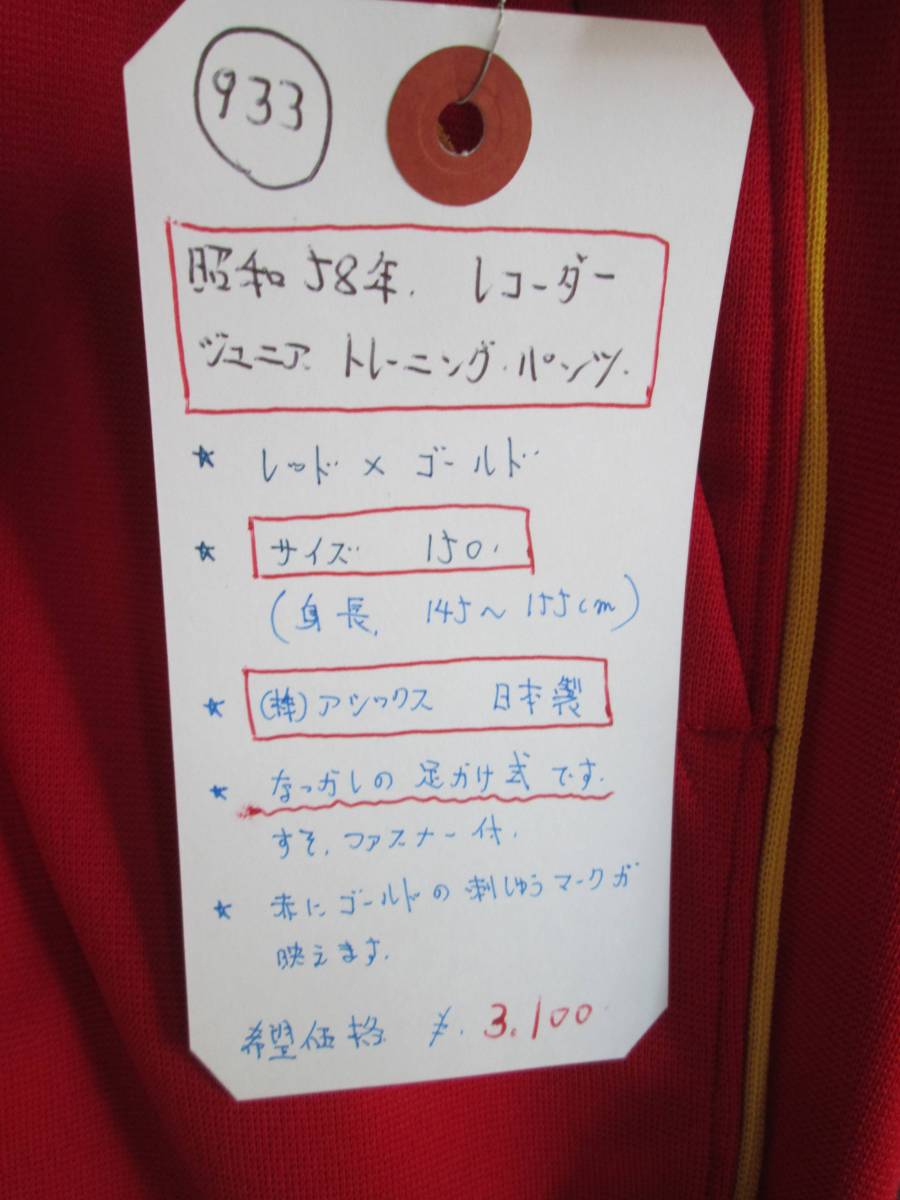 933
昭和58年. レコーダー
ジュニア トレーニング・パンツ.
★ レッド × ゴールド
★ サイズ 150.
(身長. 145～155cm)
★ (株)アシックス 日本製
★ なつかしの 足かけ式 です.
すそ.ファスナー付.
★ 赤に ゴールドの 刺しゅうマークが
映えます.
希望価格 ¥. 3.100